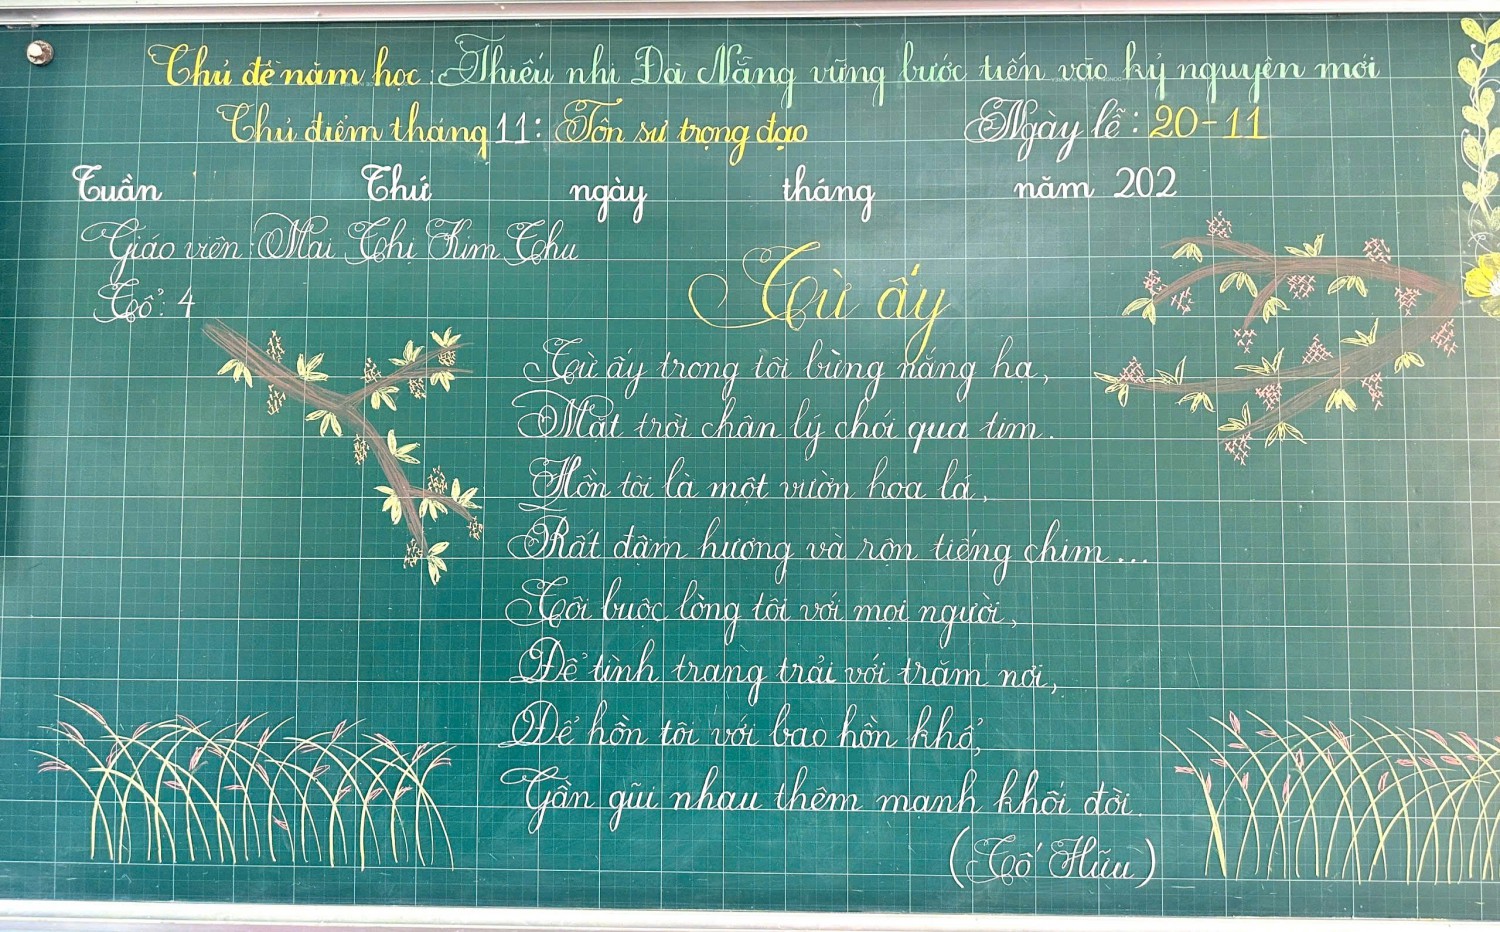 Chủ đề năm học: Thiếu nhi Đà Nẵng vững bước tiến vào kỷ nguyên mới
Chủ điểm tháng 11: Tôn sư trọng đạo Ngày lễ: 20-11
Tuần Thứ ngày tháng năm 202
Giáo viên: Mai Thị Kim Thu
Tổ: 4
Từ ấy
Từ ấy trong tôi bừng nắng hạ,
Mặt trời chân lý chói qua tim.
Hồn tôi là một vườn hoa lá,
Rất đậm hương và rộn tiếng chim...
Tôi buộc lòng tôi với mọi người,
Để tình trang trải với trăm nơi,
Để hồn tôi với bao hồn khổ,
Gần gũi nhau thêm mạnh khối đời.
(Tố Hữu)